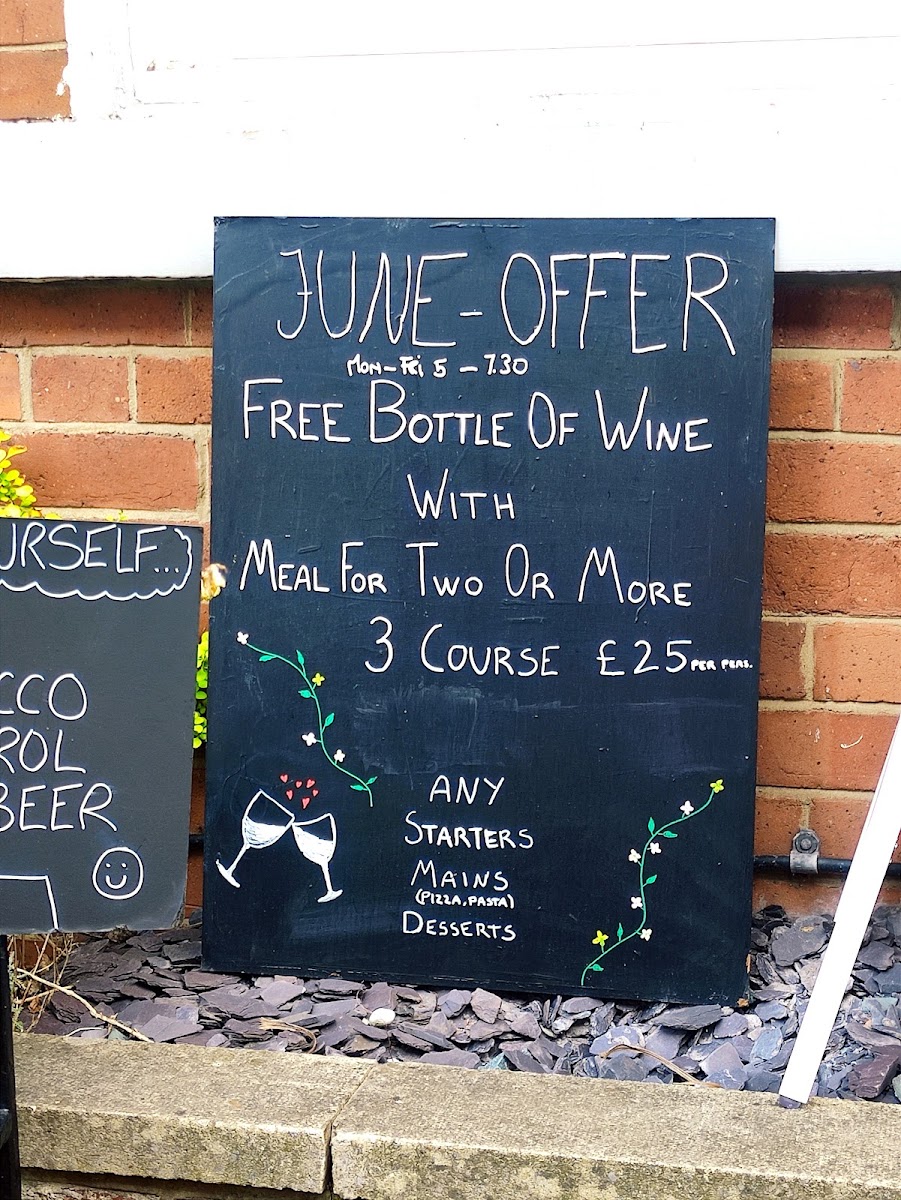 JUNE-OFFER
MON-FRI 5 - 7.30
FREE BOTTLE OF WINE
WITH
MEAL FOR TWO OR MORE
3 COURSE £25 PER PERS.
ANY
STARTERS
MAINS
(PIZZA, PASTA)
DESSERTS
URSELF...
CCO
ROL
BEER